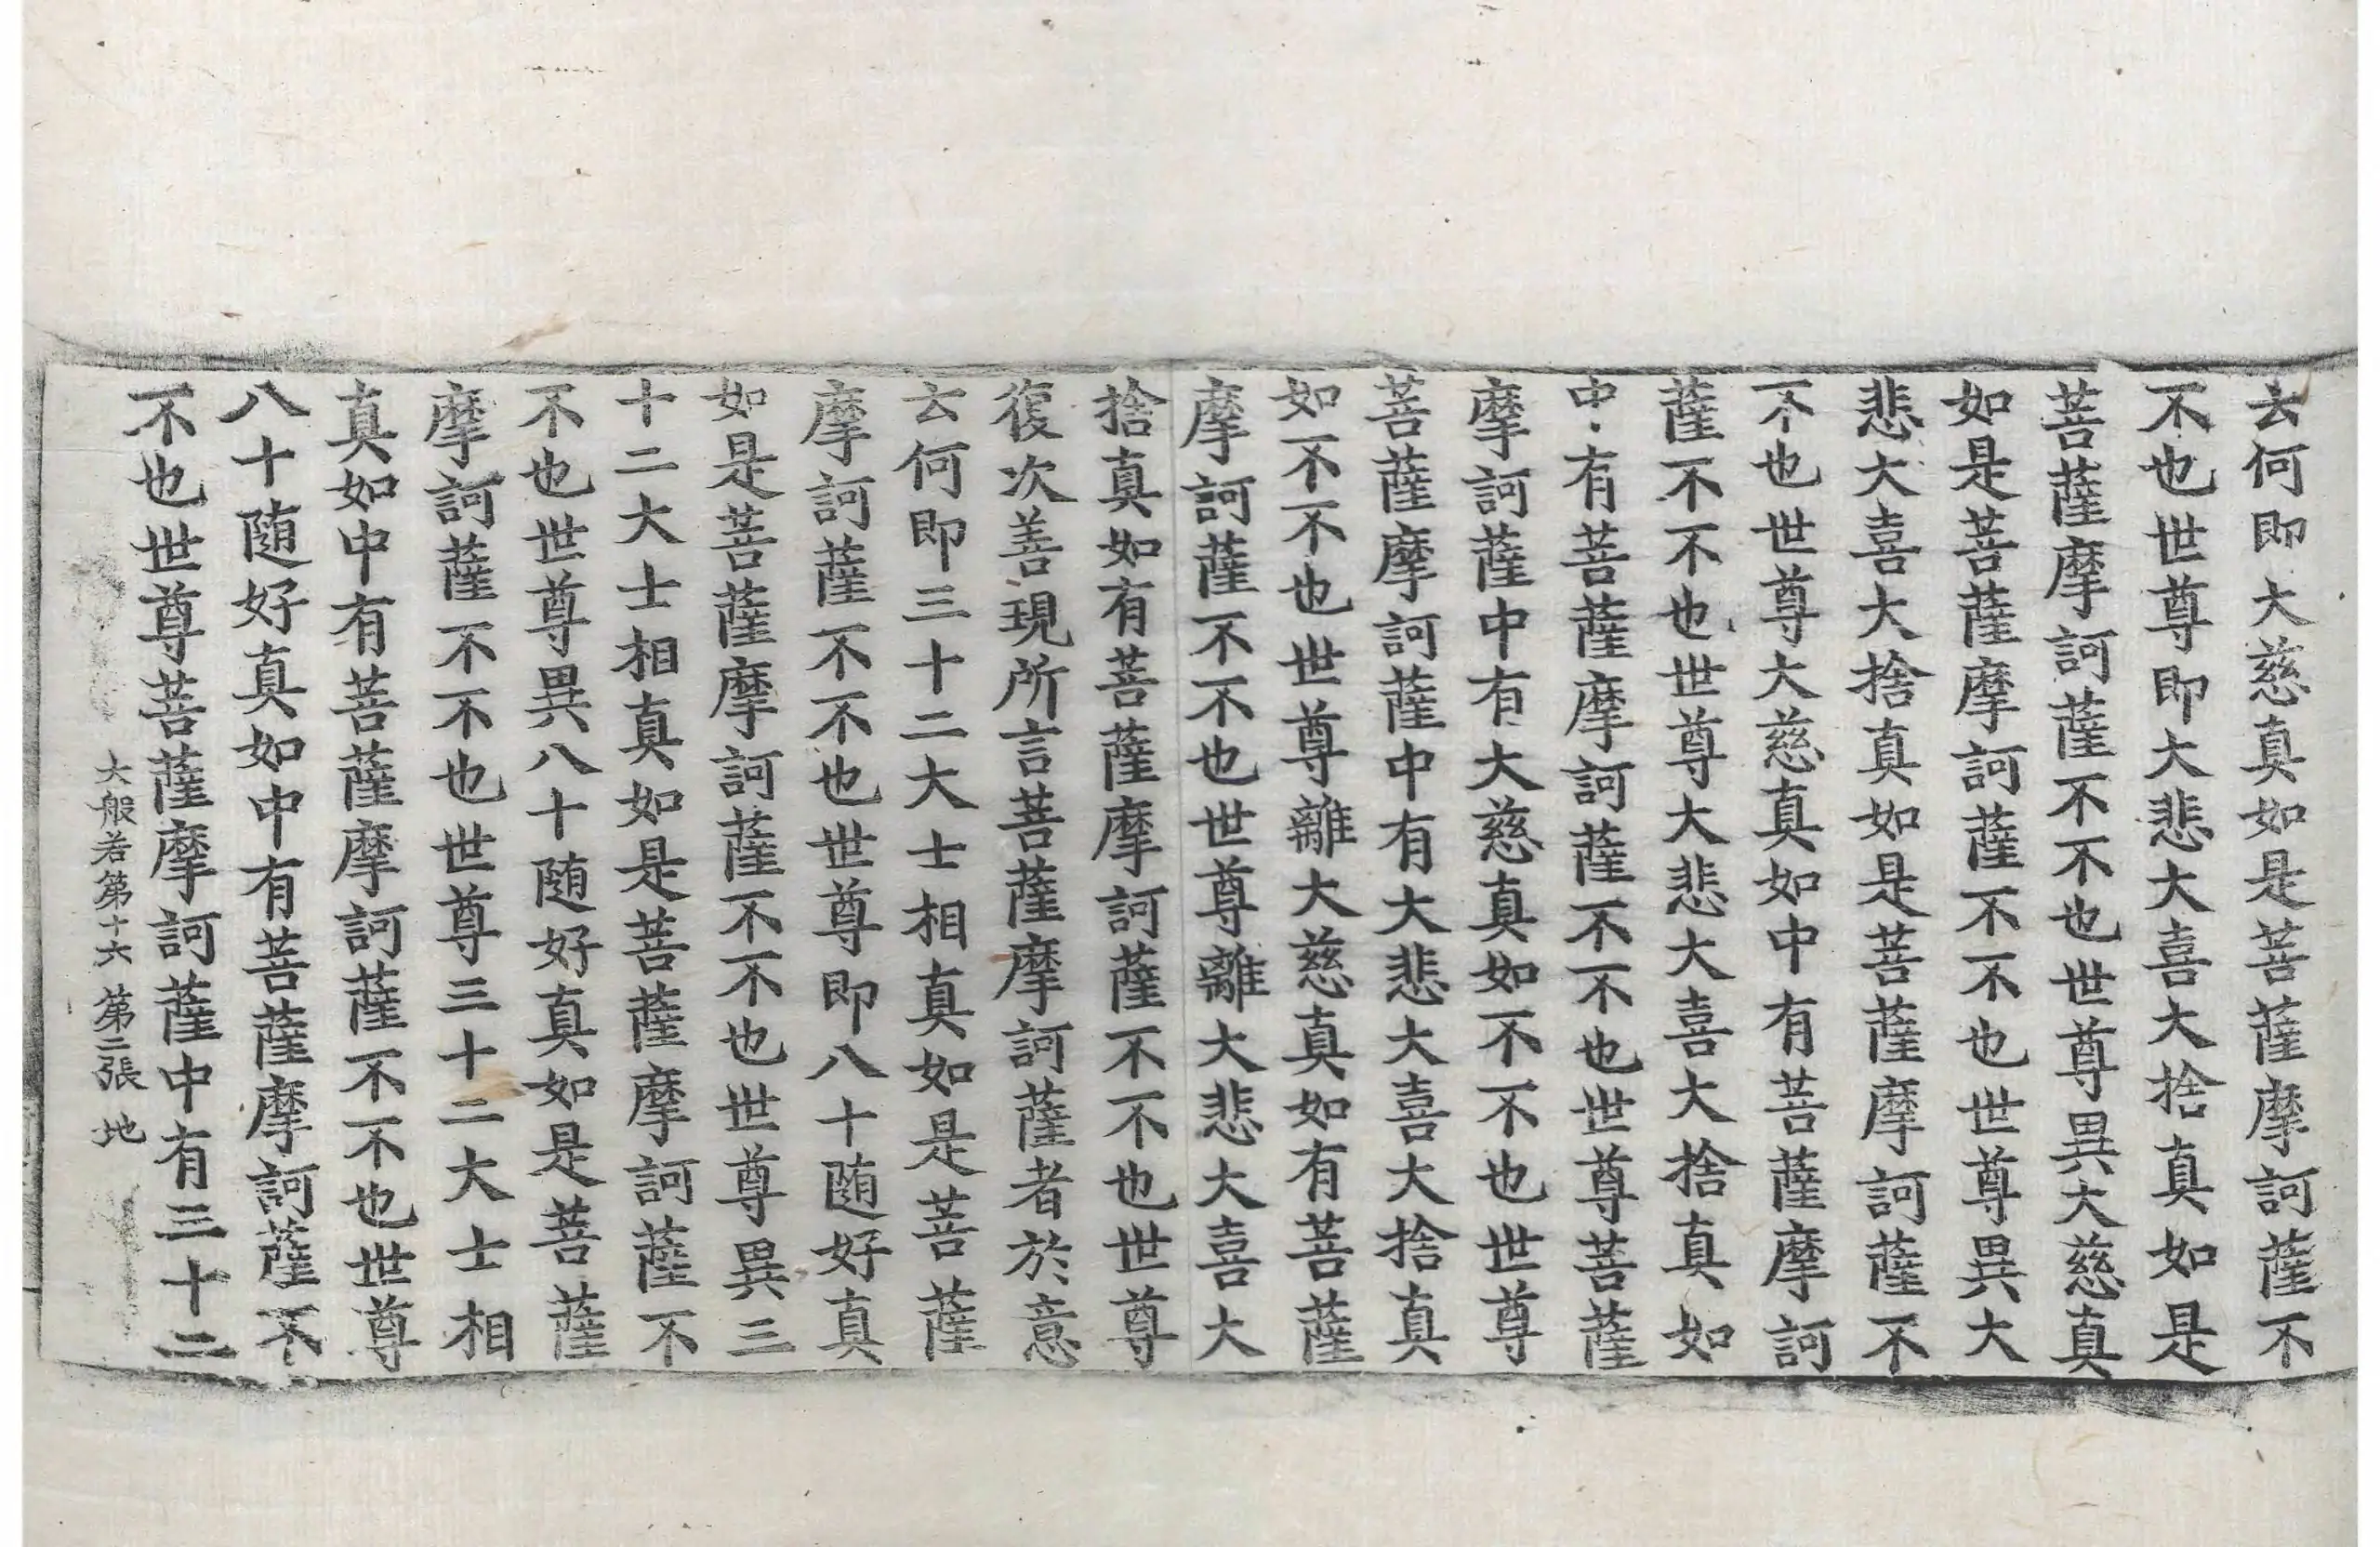 云何即大慈真如是菩薩摩訶薩不
不也世尊即大悲大喜大捨真如是
菩薩摩訶薩不不也世尊異大慈真
如是菩薩摩訶薩不不也世尊異大
悲大喜大捨真如是菩薩摩訶薩不
不也世尊大慈真如中有菩薩摩訶
薩不不也世尊大悲大喜大捨真如
中有菩薩摩訶薩不不也世尊菩薩
摩訶薩中有大慈真如不不也世尊
菩薩摩訶薩中有大悲大喜大捨真
如不不也世尊離大慈真如有菩薩
摩訶薩不不也世尊離大悲大喜大
捨真如有菩薩摩訶薩不不也世尊
復次善現所言菩薩摩訶薩者於意
云何即三十二大士相真如是菩薩
摩訶薩不不也世尊即八十随好真
如是菩薩摩訶薩不不也世尊異三
十二大士相真如是菩薩摩訶薩不
不也世尊異八十随好真如是菩薩
摩訶薩不不也世尊三十二大士相
真如中有菩薩摩訶薩不不也世尊
八十随好真如中有菩薩摩訶薩不
不也世尊菩薩摩訶薩中有三十二
大般若第十六 第二張 地